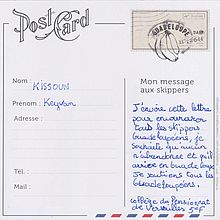 Post Card
GUADELOUPE
Nom :
KISSOUN
Prénom : Keyvan
Adresse :
Tél. :
Mail :
Mon message
aux skippers
J'envoie cette lettre
pour encourager
tous les skippers
Guadeloupéens, je
souhaite qu'aucun
n'abandonne et qu'il
arrive en Guadeloupe
Je soutiens tous les
Guadeloupéens.
Collège du Pensionnat
de Versailles 5èF